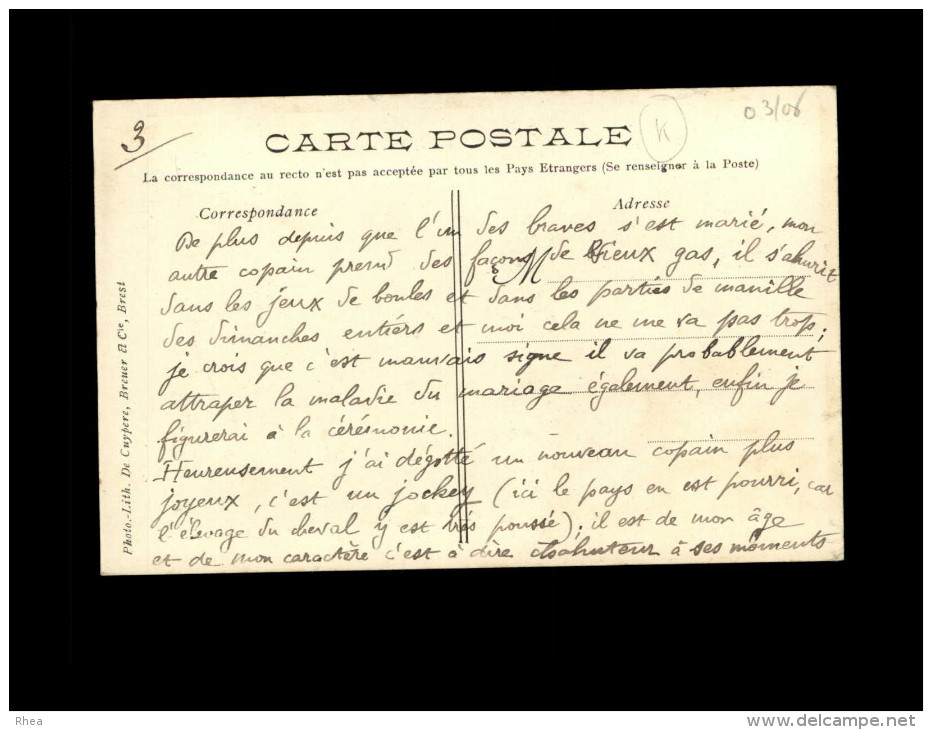 3
03/06
K
CARTE POSTALE
La correspondance au recto n'est pas acceptée par tous les Pays Etrangers (Se renseigner à la Poste)
Correspondance
Adresse
M
De plus depuis que l'un des braves s'est marié, mon
autre copain prend des façons de vieux gas, il s'ahurit
dans les jeux de boules et dans les parties de manille
des dimanches entiers et moi cela ne me va pas trop,
je crois que c'est mauvais signe il va probablement
attraper la maladie du mariage également, enfin je
figurerai à la cérémonie.
Heureusement j'ai dégotté un nouveau copain plus
joyeux, c'est un jockey (ici le pays en est pourri, car
l'élevage du cheval y est très poussé). il est de mon âge
et de mon caractère c'est à dire chahuteur à ses moments
Photo.-Lith. De Cuypere, Breuer & Cie, Brest
Rhea
www.delcampe.net